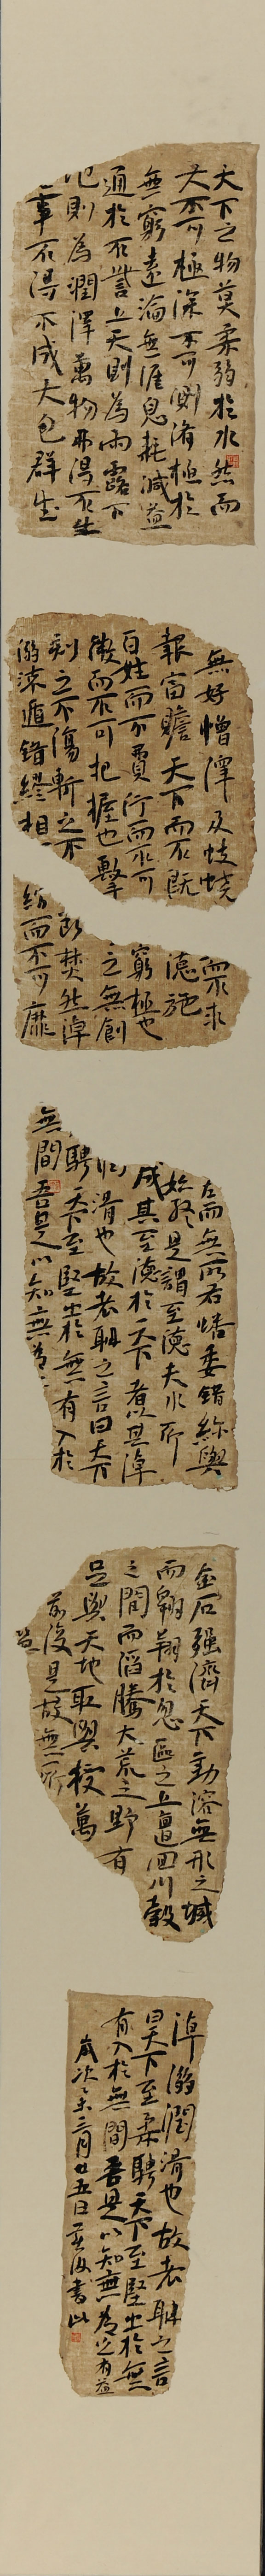 天下之物莫柔弱於水然而
大不可極深不可測脩極於
無窮遠淪無涯息耗減益
通於不訾上天則為雨露下
地則為潤澤萬物弗得不生
事不得不成大包群生
無好憎澤及蚑蟯
報富贍天下而不既
百姓而不費行而不可
微而不可把握也擊
刺之不傷斬之不
溺流遁錯繆相
而不求
德施
窮極也
之無創
斷焚之不然淖
紛而不可靡
左而無所右蟠委錯紾與
始終是謂至德夫水所
成其至德於天下者以其淖
潤滑也故老聃之言曰天下
騁天下至堅出於無有入於
無間吾是以知無為之
金石强濟天下動溶無形之域
而翱翔於忽區之上邅回川谷
之間而滔騰大荒之野有
足與天地取與授萬
前後是故無所
淖溺潤滑也故老聃之言
曰天下至柔騁天下至堅出於無
有入於無間吾是以知無為之有益
歲次乙未三月廿五日書此